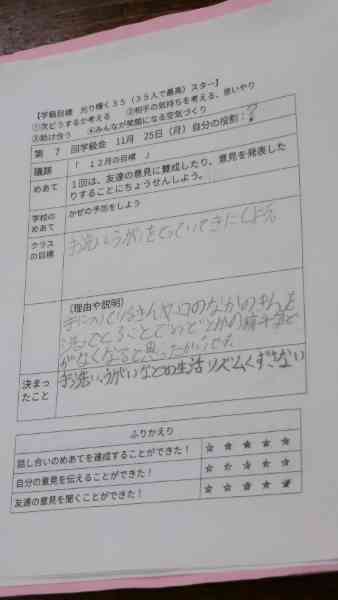 【学級目標　光り輝く３５（３５人で最高）スター】
①次どうするか考える　②相手の気持ちを考える、思いやり
③助け合う　④みんなが笑顔になる空気づくり
第　7　回学級会　11月　25日（月）自分の役割：？
議題　「　１２月の目標　」
めあて　１回は、友達の意見に賛成したり、意見を発表したりすることにちょうせんしよう。
学校のめあて　かぜの予防をしよう
クラスの目標　手洗いうがいを
（理由や説明）
手についているきんや口のなかのきんを
洗って
がなくなると思ったからです。
決まったこと　手洗い、うがいなどの生活リズムくずさない
ふりかえり
話し合いのめあてを達成することができた！　☆　☆　☆　☆　☆
自分の意見を伝えることができた！　☆　☆　☆　☆　☆
友達の意見を聞くことができた！　☆　☆　☆　☆　★